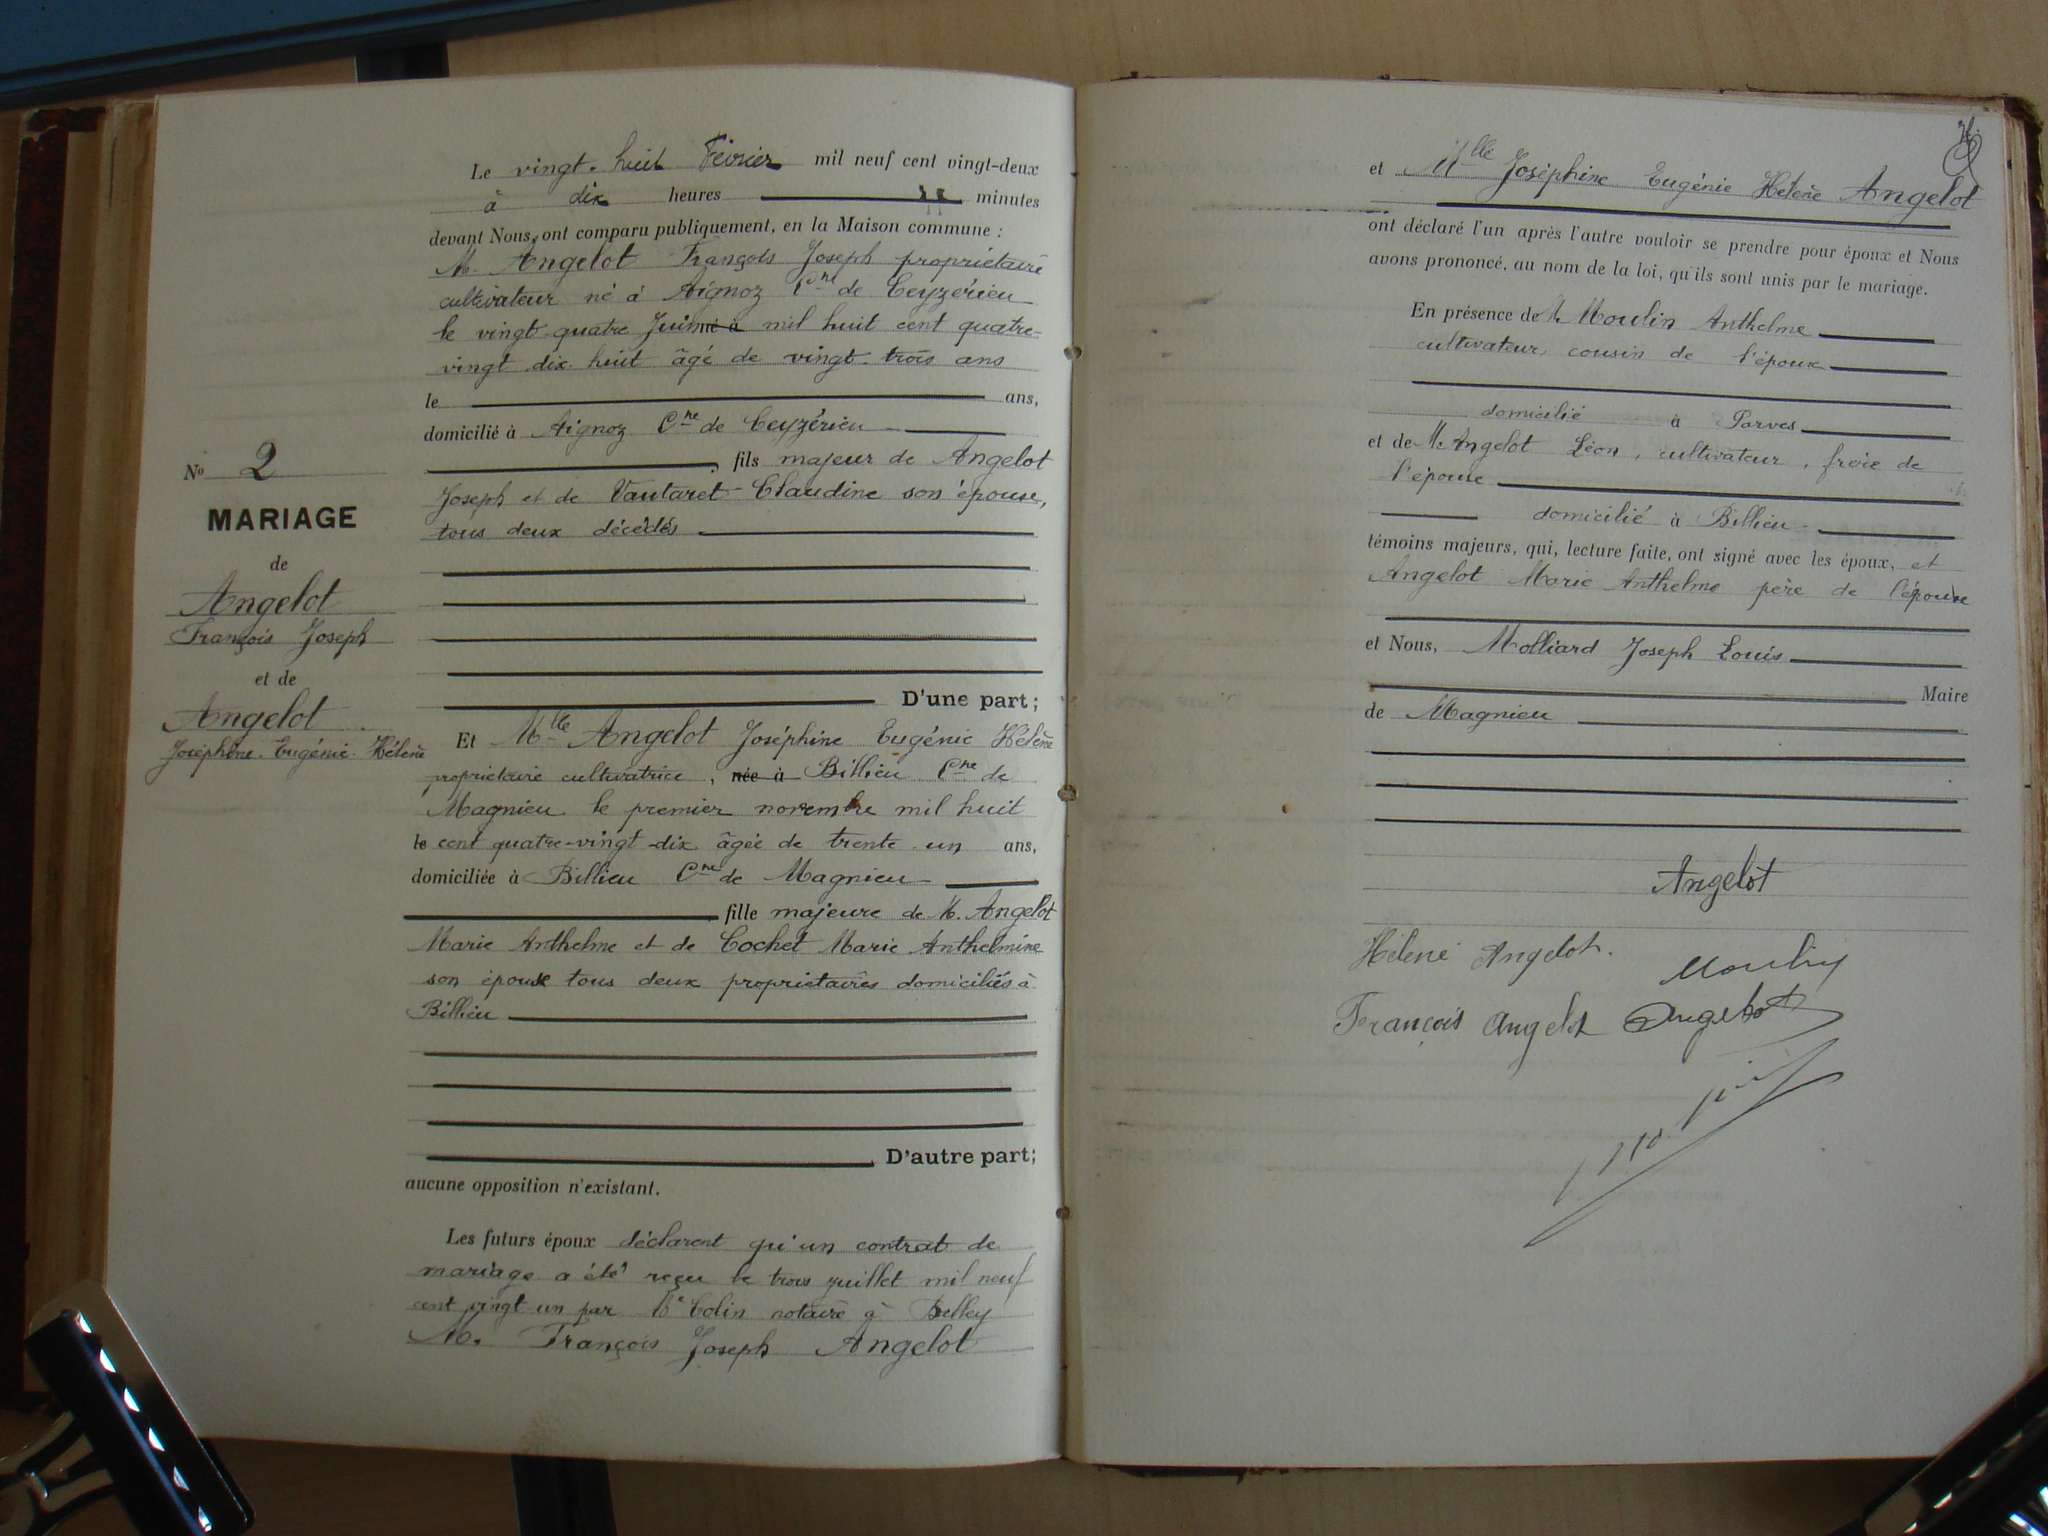 Le vingt-huit Février mil neuf cent vingt-deux
à dix heures minutes
devant Nous, ont comparu publiquement, en la Maison commune :
M. Angelot François Joseph propriétaire
cultivateur né à Aignoz Cne de Ceyzérieu
le vingt-quatre Juin né à mil huit cent quatre-
vingt dix huit âgé de vingt-trois ans
le ans,
domicilié à Aignoz Cne de Ceyzérieu
fils majeur de Angelot
Joseph et de Vautaret Claudine son épouse,
tous deux décédés
D'une part ;
No 2
MARIAGE
de
Angelot
François Joseph
et de
Angelot
Joséphine Eugénie Hélène
Et Mlle Angelot Joséphine Eugénie Hélène
propriétaire cultivatrice, née à Billieu Cne de
Magnieu le premier novembre mil huit
le cent quatre-vingt-dix âgée de trente un ans,
domiciliée à Billieu Cne de Magnieu
fille majeure de M. Angelot
Marie Anthelme et de Cochet Marie Anthelmine
son épouse tous deux propriétaires domiciliés à
Billieu
D'autre part ;
aucune opposition n'existant.
Les futurs époux déclarent qu'un contrat de
mariage a été reçu le trois juillet mil neuf
cent vingt un par Me Colin notaire à Belley
M. François Joseph Angelot
et Mlle Joséphine Eugénie Hélène Angelot
ont déclaré l'un après l'autre vouloir se prendre pour époux et Nous
avons prononcé, au nom de la loi, qu'ils sont unis par le mariage.
En présence de M. Moulin Anthelme
cultivateur, cousin de l'époux
domicilié à Parves
et de M. Angelot Léon, cultivateur, frère de
l'épouse
domicilié à Billieu
témoins majeurs, qui, lecture faite, ont signé avec les époux, et
Angelot Marie Anthelme père de l'épouse
et Nous, Molliard Joseph Louis
Maire
de Magnieu
Angelot
Hélène Angelot.
Moulin
François Angelot Angelot